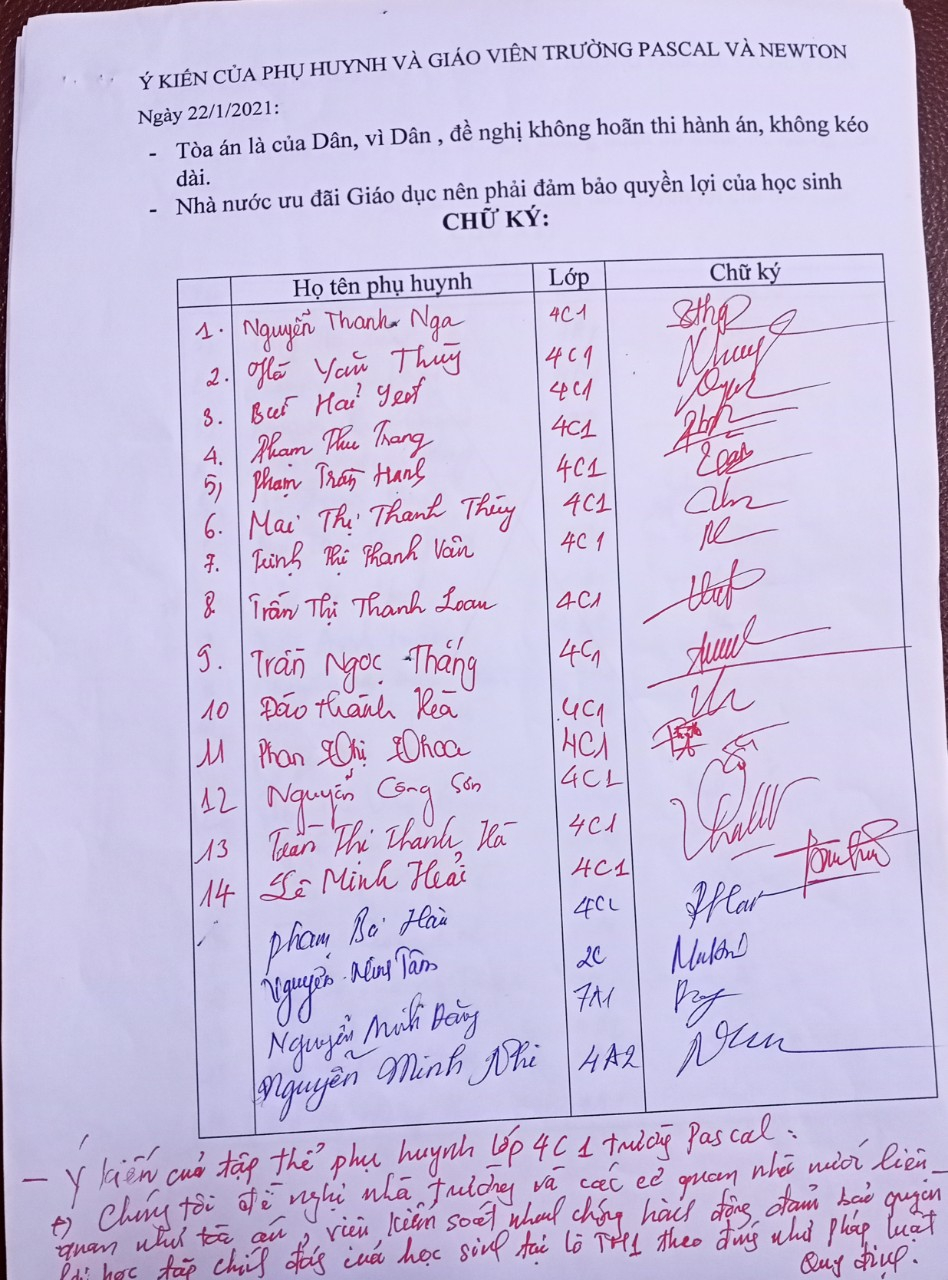 Ý KIẾN CỦA PHỤ HUYNH VÀ GIÁO VIÊN TRƯỜNG PASCAL VÀ NEWTON
Ngày 22/1/2021:
- Tòa án là của Dân, vì Dân , đề nghị không hoãn thi hành án, không kéo
dài.
- Nhà nước ưu đãi Giáo dục nên phải đảm bảo quyền lợi của học sinh
CHỮ KÝ:
Họ tên phụ huynh Lớp Chữ ký
1. Nguyễn Thanh Nga 4C1
2. Thúy 4C1
3. Bùi Hải 4C1
4. Phạm Thu Trang 4C1
5) Phạm Trần Hạnh 4C1
6. Mai Thị Thanh Thủy 4C1
7. Trịnh Thị Thanh Vân 4C1
8. Trần Thị Thanh Loan 4C1
9. Trần Ngọc Thắng 4C1
10 Đào Thành 4C1
11 Phan Thị Thoa 4C1
12 Nguyễn Công Sơn 4C1
13 Trần Thị Thanh Hà 4C1
14 Lê Minh Hải 4C1
Phạm Bá
Nguyễn Tâm 2C
Nguyễn Minh Đăng 7A1
Nguyễn Minh Nhi 4A2
- Ý kiến của tập thể phụ huynh lớp 4C1 trường Pascal:
+) Chúng tôi đề nghị nhà trường và các cơ quan nhà nước liên
quan như tòa án, viện kiểm soát nhanh chóng hành động đảm bảo quyền
lợi học tập chính đáng của học sinh tại lô TH1 theo đúng như pháp luật
Quy định.